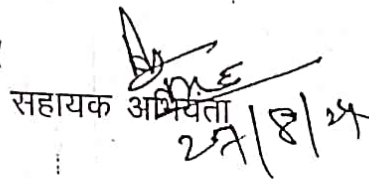 सहायक अभियंता
27/8/24